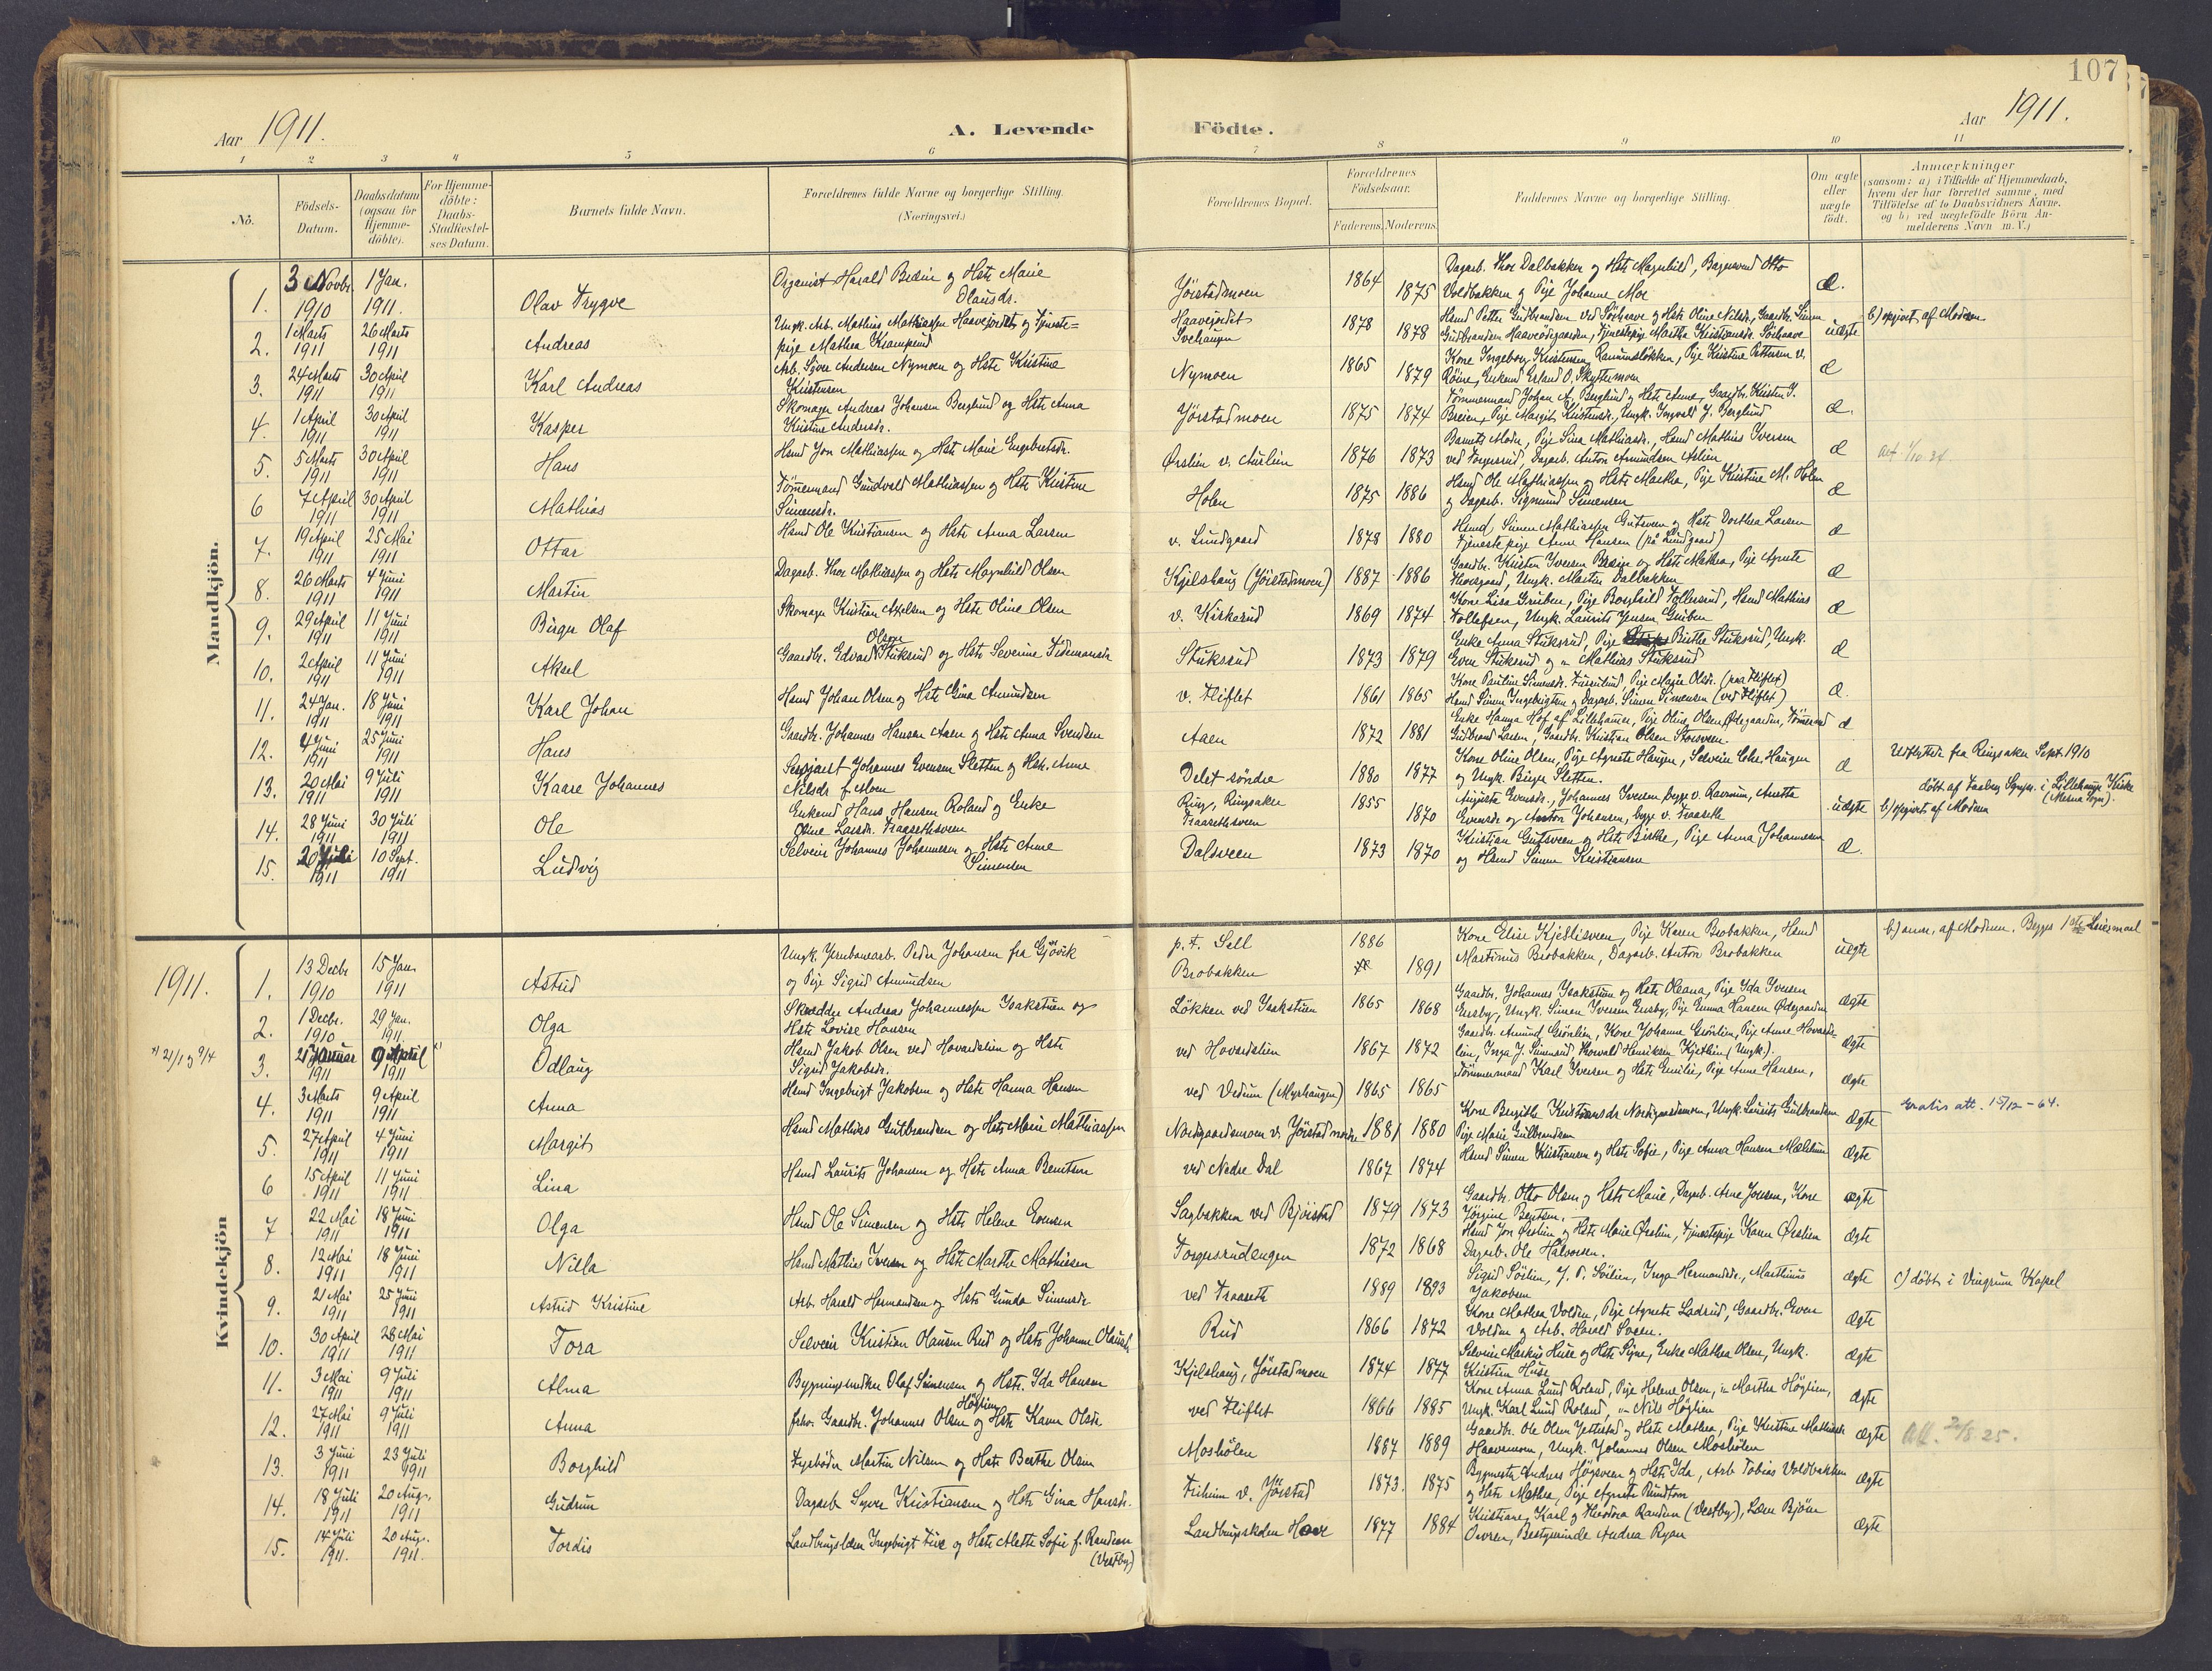 107
Aar 1911.
A. Levende
Födte.
Aar 1911.
1 2 3 4 5 6 7 8 9 10 11
Nô.
Födsels-
Datum.
Daabsdatum
(ogsaa for
Hjemme-
döbte).
For Hjemme-
döbte:
Daabs-
Stadfæstel-
ses Datum.
Barnets fulde Navn.
Forældrenes fulde Navne og borgerlige Stilling.
(Næringsvei.)
Forældrenes Bopæl.
Forældrenes
Födselsaar.
Faderens. Moderens.
Faddernes Navne og borgerlige Stilling.
Om ægte
eller
uægte
födt.
Anmærkninger
(saasom: a) i Tilfælde af Hjemmedaab,
hvem der har forrettet samme, med
Tilföielse af to Daabsvidners Navne.
og b) ved uægtefödte Börn An-
melderens Navn m. V.)
Mandkjön.
1. 3 Novbr. 1910 1 Jan. 1911. Olav Trygve Organist Harald Bedin og Hstr Marie
Olausdr. Jörstadmoen 1864 1875 Dagarb. Thor Dalbakken og Hstr Magnhild, Bagersvend Otto
Voldbakken og Pige Johanne Moe Æ.
2. 1 Marts 1911 26 Marts 1911 Andreas Ungk. Arb. Mathias Mathiassen Haavejordet og Tjeneste=
pige Mathea Kramperud Haavejordet
Svehaugen 1878 1878 Hsmd Petter Gudbrandsen ved Sörhaave og Hstr Oline Nilsdr., Gaardbr. Simen
Gudbrandsen Haaveödegaarden, Tjenestepige Martha Kristiansdr. Sörhaave uægte b) opgivet af Moderen
3. 24 Marts 1911 30 April 1911 Karl Andreas Arb. Syver Andersen Nymoen og Hstr Kristine
Kristensen Nymoen 1865 1879 Kone Ingeborg Kristensen, Pige Kristine Pettersen v.
Röine, Enkemd Erland O. Skyttermoen Æ
4. 1 April 1911 30 April 1911 Kasper Skomager Andreas Johansen Berglund og Hstr Anna
Kristine Andersdr. Jörstadmoen 1875 1874 Tömmermand Johan A. Berglund og Hstr Anne, Gaardbr. Kristen I.
Breien, Pige Margit Kristensdr., Ungk. Ingvald J. Berglund Æ.
5. 5 Marts 1911 30 April 1911 Hans Hsmd Jon Mathiassen og Hstr Marie Engebretsdr. Örslien v. Aaslien 1876 1873 Barnets Moder, Pige Lina Mathiasdr., Hsmd Mathias Iversen
ved Torgersrud, Dagarb. Anton Amundsen Aslien Æ
6 7 April 1911 30 April 1911 Mathias Tömmermand Gundvald Mathiassen og Hstr Kristine
Simensdr. Holen 1875 1886 Hsmd Ole Mathiassen og Hstr Marthe, Pige Kristine M. Holen
og Dagarb. Sigmund Simensen Æ
7. 19 April 1911 25 Mai 1911 Ottar Hsmd Ole Kristiansen og Hstr Anna Larsen v. Lundgaard 1878 1880 Hsmd Simen Mathiassen Gutsveen og Hstr Dorthea Larsen
Tjenestepige Anne Hansen (på Lundgaard) Æ
8. 26 Marts 1911 4 Juni 1911 Martin Dagarb. Thor Mathiassen og Hstr Magnhild Olsen Kjelshaug (Jörstadmoen) 1887 1886 Gaardbr. Kristen Iversen Breien og Hstr Mathea, Pige Agnete
Ungk. Martin Dalbakken Æ
9. 29 April 1911 11 Juni 1911 Birger Olaf Skomager Kristian Axelsen og Hstr Oline Olsen v. Kirkerud 1869 1874 Kone Lisa Gruben, Pige Borghild Tollersrud, Hsmd Mathias
Tollefsen, Ungk. Laurits Jensen Gruben Æ
10. 2 April 1911 11 Juni 1911 Aksel Gaardbr. Edvard Olsen Stuksrud og Hstr Severine Tidemansdr Stuksrud 1873 1879 Enke Anna Stuksrud, Pige Birthe Stuksrud, Ungk.
Even Stuksrud og " Mathias Stuksrud Æ
11. 24 Jan. 1911 18 Juni 1911 Karl Johan Hsmd Johan Olsen og Hstr Gina Amundsen v. Fliflet 1861 1865 Kone Pauline Simensdr. Pige Marie Olsdr. (paa Fliflet)
Hsmd Simen Ingebrigtsen og Dagarb. Simen Simensen (ved Fliflet) Æ.
12. 4 Juni 1911 25 Juni 1911 Hans Gaardbr. Johannes Hansen Aaen og Hstr Anna Svendsen Aaen 1872 1881 Enke Hanna Hof af Lillehammer, Pige Oline Olsen Ödegaarden, Tömmermd
Gudbrand Larsen, Gaardbr. Kristian Olsen Storsveen. Æ
13. 20 Mai 1911 9 Juli 1911 Kaare Johannes Sergeant Johannes Evensen Sletten og Hstr. Anne
Nilsdr f. Moen Delet söndre 1880 1877 Kone Oline Olsen, Pige Agnete Haugen, Selveier Lohr. Haugen
og Ungk. Birger Sletten. Æ Udflyttet fra Ringsaker Sept 1910
14. 28 Juni 1911 30 Juli 1911 Ole Enkemd Hans Hansen Roland og Enke
Oline Larsdr. Fraasethsveen Ring, Ringsaker
Fraasethsveen 1855 1870 Augusta Evensdr., Johannes Iversen begge v. Ravnum, Anette
Evensdr og Anton Johansen, begge v. Fraaseth uægte döbt af Faaberg Sognepr. i Lillehammer Kirke
(Mesna Sogn).
b) opgivet af Moderen
15. 20 Juli 1911 10 Sept. 1911 Ludvig Selveier Johannes Johannesen og Hstr Anne
Simensen Dalsveen 1873 1870 Kristian Gutsveen og Hstr Birthe, Pige Anna Johannesen
og Hsmd Simen Kristiansen Æ.
Kvindekjön
1911.
1. 13 Decbr 1910 15 Jan. 1911 Astrid Ungk. Jernbanearb. Peder Johansen fra Gjövik
og Pige Sigrid Amundsen p. t. Sell
Brobakken 1886 1891 Kone Elise Kjetlisveen, Pige Karen Brobakken, Hsmd
Martinus Brobakken, Dagarb. Anton Brobakken uægte b) anm. af Moderen. Begges 1ste Leiermaal
2. 1 Decbr. 1910 29 Jan. 1911. Olga Skrædder Andreas Johannessen Isakstuen og
Hstr Lovise Hansen Lökken ved Isakstuen 1865 1868 Gaardbr. Johannes Isakstuen og Hstr Oleana, Pige Ida Iversen
Ersby, Ungk. Simen Iversen Ersby, Pige Emma Hansen Ödegaarden ægte
*) 21/1 9/4
3. 21 Januar 1911 9 April 1911 *) Odlaug Hsmd Jakob Olsen ved Hovardslien og Hstr
Sigrid Jakobsdr. ved Hovardslien 1867 1872 Gaardbr. Amund Grönlien, Kone Johanne Grönlien, Pige Anne Hovards-
lien, Inga J. Simensrud Thorvald Henriksen Kjetlien (Ungk). ægte
4. 3 Marts 1911 9 April 1911 Anna Hsmd Ingebrigt Jakobsen og Hstr Hanna Hansen ved Vedum (Myrhaugen) 1865 1865 Tömmermand Karl Iversen og Hstr Emilie, Pige Anne Hansen, ægte
5. 27 April 1911 4 Juni 1911 Margit Hsmd Mathias Gulbrandsen og Hstr Marie Mathiassen Nordgaardsmoen v. Jörstadmoen 1881 1880 Kone Bergithe Kristiansdr Nordgaardsmoen, Ungk. Laurits Gulbrandsen
Pige Marie Gulbrandsen Ægte Gratis att. 15/12-64.
6 15 April 1911 11 Juni 1911 Lina Hsmd Laurits Johansen og Hstr Anna Berntsen ved Nedre Dal 1867 1874 Hsmd Simen Kristiansen og Hstr Sofie, Pige Anna Hansen Mælstum Ægte
7 22 Mai 1911 18 Juni 1911 Olga Hsmd Ole Simensen og Hstr Helene Evensen Sagbakken ved Björstad 1879 1873 Gaardbr. Otto Olsen og Hstr Marie, Dagarb. Arne Joensen, Kone
Jörgine Berntsen. ægte
8. 12 Mai 1911 18 Juni 1911 Nilla Hsmd Mathias Iversen og Hstr Marthe Mathiesen Torgersrudengen 1872 1868 Hsmd Jon Örslien og Hstr Marie Örslien, Tjenestepige Karen Örslien
Dagarb. Ole Halvorsen. Ægte
9. 21 Mai 1911 25 Juni 1911 Astrid Kristine Arb. Harald Hermandsen og Hstr Gunda Simensdr ved Fraaseth 1889 1893 Sigrid Sörlien, J. P. Sörlien, Inga Hermandsdr., Marthinus
Jakobsen Ægte c) döbt i Vingrum Kapel
10. 30 April 1911 28 Mai 1911 Tora Selveier Kristian Olausen Rud og Hstr Johanne Olausdr. Rud 1866 1872 Kone Mathea Volden, Pige Agnete Ladsrud, Gaardbr. Even
Volden og Arb. Harald Sveen. Ægte
11. 3 Mai 1911 9 Juli 1911 Alma Bygningssnedker Olaf Simensen og Hstr. Ida Hansen Kjelshaug, Jörstadmoen 1874 1877 Selveier Markus Huse og Hstr Signe, Enke Mathea Olsen, Ungk.
Kristian Huse Ægte
12. 27 Mai 1911 9 Juli 1911 Anna fhv. Gaardbr. Johannes Olsen Höglien og Hstr Karen Olsdr. ved Fliflet 1866 1885 Kone Anna Lund Roland, Pige Helene Olsen, " Marthe Höglien,
Ungk. Karl Lund Roland, " Nils Höglien Ægte
13. 3 Juni 1911 23 Juli 1911 Borghild Fyrböder Martin Nilsen og Hstr Berthe Olsen Moshölen 1887 1889 Gaardbr. Ole Olsen Jetlistad og Hstr Mathea, Pige Kristine Mathiasdr
Haavemoen, Ungk. Johannes Olsen Moshölen Ægte Att. 20/8 25.
14. 18 Juli 1911 20 Aug. 1911 Gudrun Dagarb Syver Kristiansen og Hstr Gina Hansdr. Friheim v. Jörstad 1873. 1875 Bygmester Anders Högsveen og Hstr Ida, Arb Tobias Voldbakken
og Hstr Mathea, Pige Agnete Rundtom Ægte
15. 14 Juli 1911. 20 Aug. 1911. Tordis Landbrugslærer Ingebrigt Five og Hstr Alette Sofie f. Randeen
(Vestby) Landbrugsskolen Hove 1877 1884 Kristiane, Karl og Theodora Randeen (Vestby), Lærer Björn
Oevren, Bestyrerinde Andrea Ryan Ægte